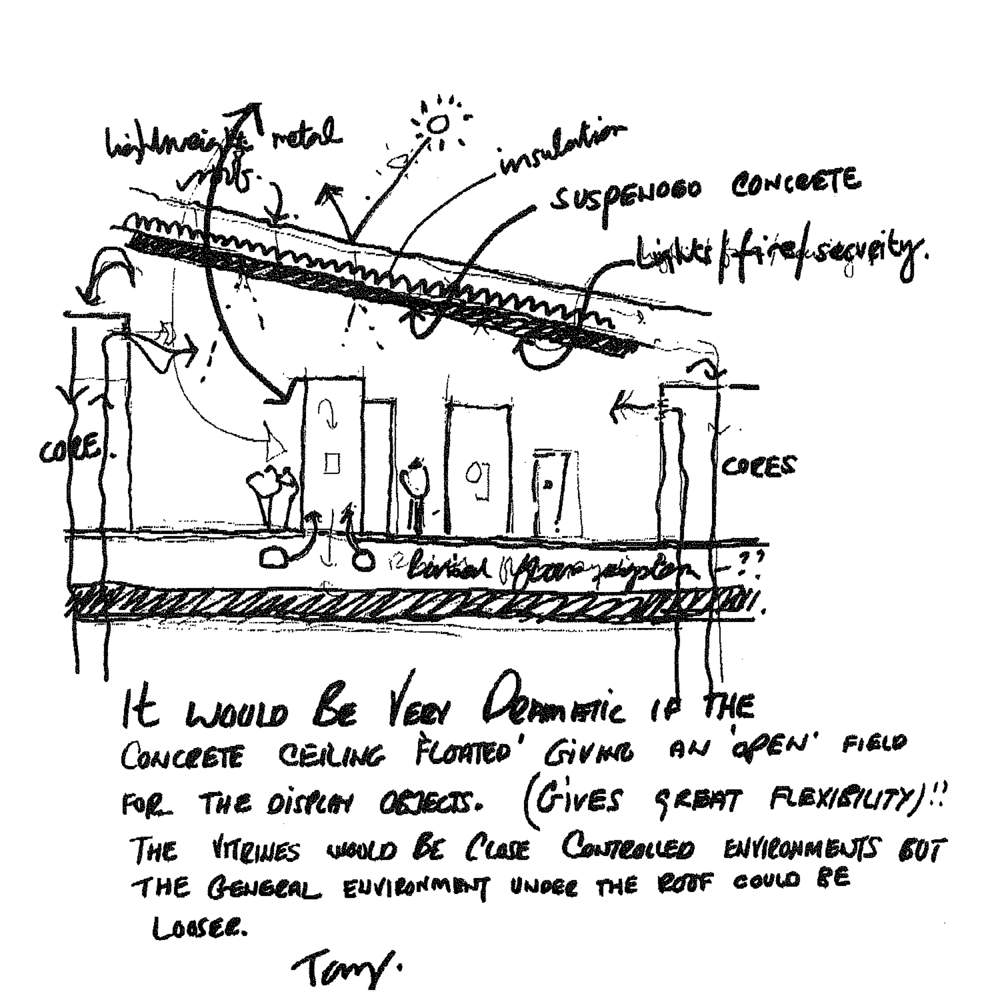 lightweight metal
insulation
SUSPENDED CONCRETE
Lights/fire/security.
CORE.
CORES
??
It WOULD BE VERY DRAMATIC IF THE
CONCRETE CEILING 'FLOATED' GIVING AN 'OPEN' FIELD
FOR THE DISPLAY OBJECTS. (GIVES GREAT FLEXIBILITY)!!
THE VITRINES WOULD BE CLOSE CONTROLLED ENVIRONMENTS BUT
THE GENERAL ENVIRONMENT UNDER THE ROOF COULD BE
LOOSER.
Tony.